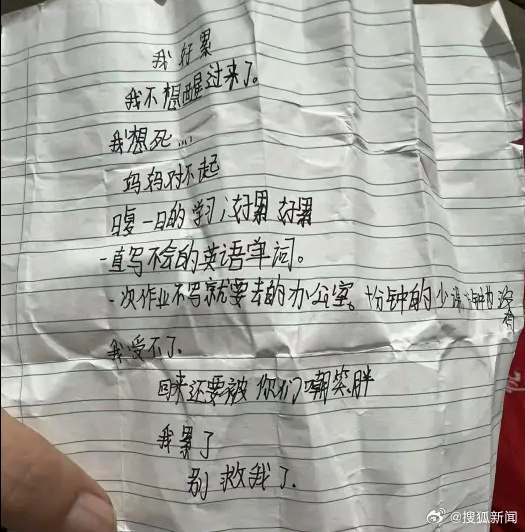 我好累
我不想醒过来了。
我想死...
妈妈对不起
日复一日的学习,好累 好累
一直写不会的英语单词。
一次作业不写就要去的办公室。十分钟的少误 钟的没有
我受不了.
回来还要被 你们嘲笑胖
我累了
别救我了.
@搜狐新闻